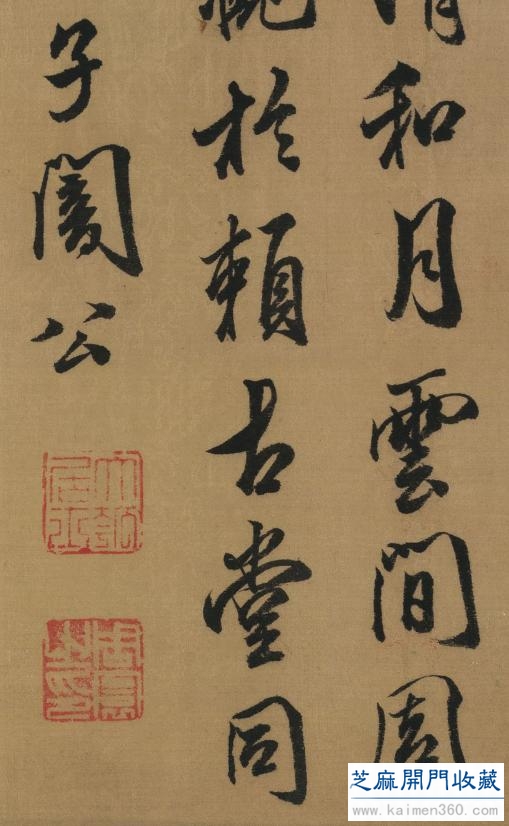 清和月雲間周
於賴古堂同
子闇公
芝麻開門收藏
www.kaimen360.com